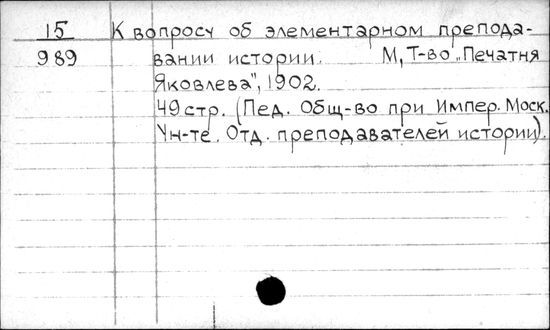 15 К вопросу об элементарном препода-
989 вании истории. М, Т-во „Печатня
Яковлева", 1902.
49 стр. (Пед. Общ-во при Импер. Моск.
Ун-те. Отд. преподавателей истории).